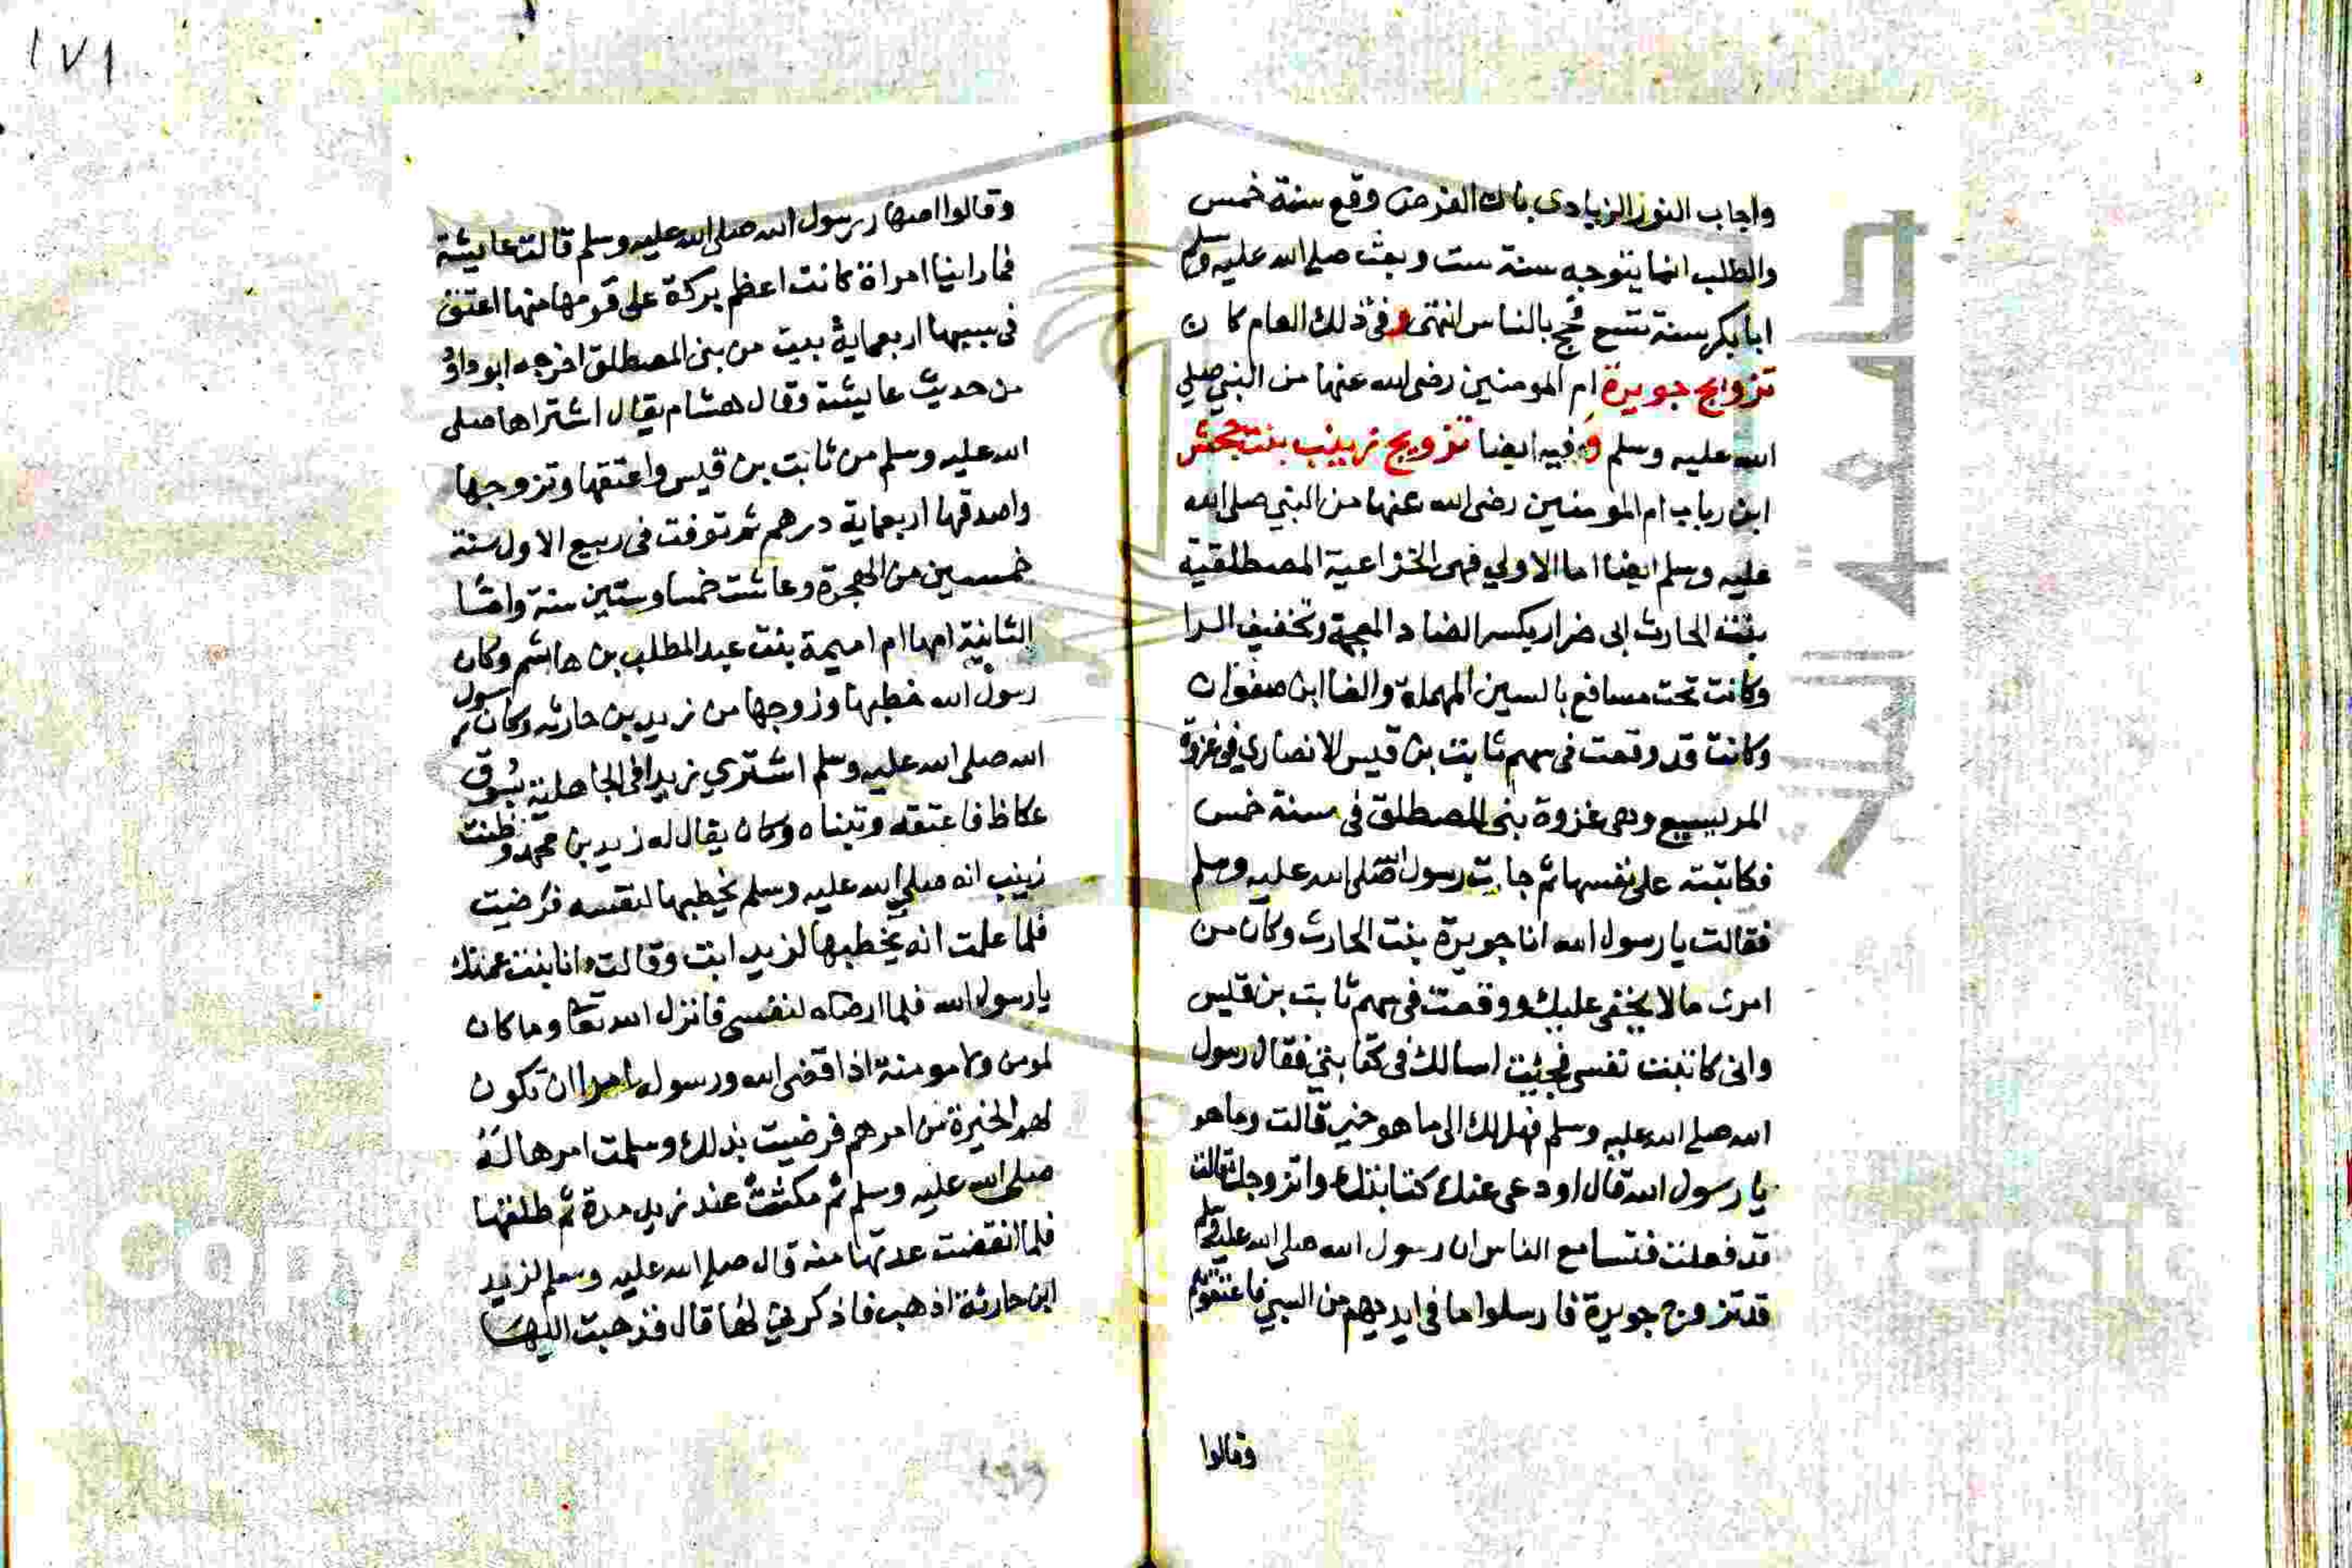 واجاب النور الزيادى بان الفرض وقع سنة خمس
والطلب انما يتوجه سنة ست وبعث صلى الله عليه وسلم
ابا بكر سنة تسع فحج بالناس انتهى وفى ذلك العام كان
تزويج جويرة ام المومنين رضى الله عنها من النبي صلي
الله عليه وسلم وفيه ايضا تزويج زينب بنت جحش
ابن رياب ام المومنين رضى الله عنها من النبي صلى الله
عليه وسلم ايضا اما الاولي فهى الخزاعية المصطلقية
بنت الحارث ابى ضرار بكسر الضاد المعجمة وتخفيف الرا
وكانت تحت مسافع بالسين المهملة والفا ابن صفوان
وكانت قد وقعت فى سهم ثابت بن قيس الانصاري في غزوة
المريسيع وهى غزوة بنى المصطلق فى سنة خمس
فكاتبته على نفسها ثم جات رسول الله صلى الله عليه وسلم
فقالت يا رسول الله انا جويرة بنت الحارث وكان من
امرى ما لا يخفى عليك ووقعت فى سهم ثابت بن قيس
وانى كاتبت نفسى فجئت اسالك فى كتابتي فقال رسول
الله صلى الله عليه وسلم فهل لك الى ما هو خير قالت وما هو
يا رسول الله قال اودى عنك كتابتك واتزوجك قالت
قد فعلت فتسامع الناس ان رسول الله صلى الله عليه وسلم
قد تزوج جويرة فارسلوا ما فى ايديهم من السبي فاعتقوهم
وقالوا
١٧١
وقالوا اصهار رسول الله صلى الله عليه وسلم قالت عايشة
فما راينا امراة كانت اعظم بركة على قومها منها اعتق
فى سببها اربعماية بيت من بنى المصطلق اخرجه ابو داود
من حديث عايشة وقال هشام يقال اشتراها صلى
الله عليه وسلم من ثابت بن قيس واعتقها وتزوجها
واصدقها اربعماية درهم ثم توفت فى ربيع الاول سنة
خمسين من الهجرة وعاشت خمسا وستين سنة واما
الثانية امها ام اميمة بنت عبد المطلب بن هاشم وكان
رسول الله خطبها وزوجها من زيد بن حارثه وكان رسول
الله صلى الله عليه وسلم اشتري زيدا فى الجاهلية بسوق
عكاظ فاعتقه وتبناه وكان يقال له زيد بن محمد وظنت
زينب انه صلي الله عليه وسلم يخطبها لنفسه فرضيت
فلما علمت انه يخطبها لزيد ابت وقالت انا بنت عمتك
يا رسول الله فلما ارضاه لنفسى فانزل الله تعا وما كان
لمومن ولا مومنة اذا قضى الله ورسوله امرا ان تكون
لهم الخيرة من امرهم فرضيت بذلك وسلمت امرها له
صلى الله عليه وسلم ثم مكثت عند زيد مدة ثم طلقها
فلما انقضت عدتها منه قال صلى الله عليه وسلم لزيد
ابن حارثة اذهب فاذكرني لها قال فذهبت اليها